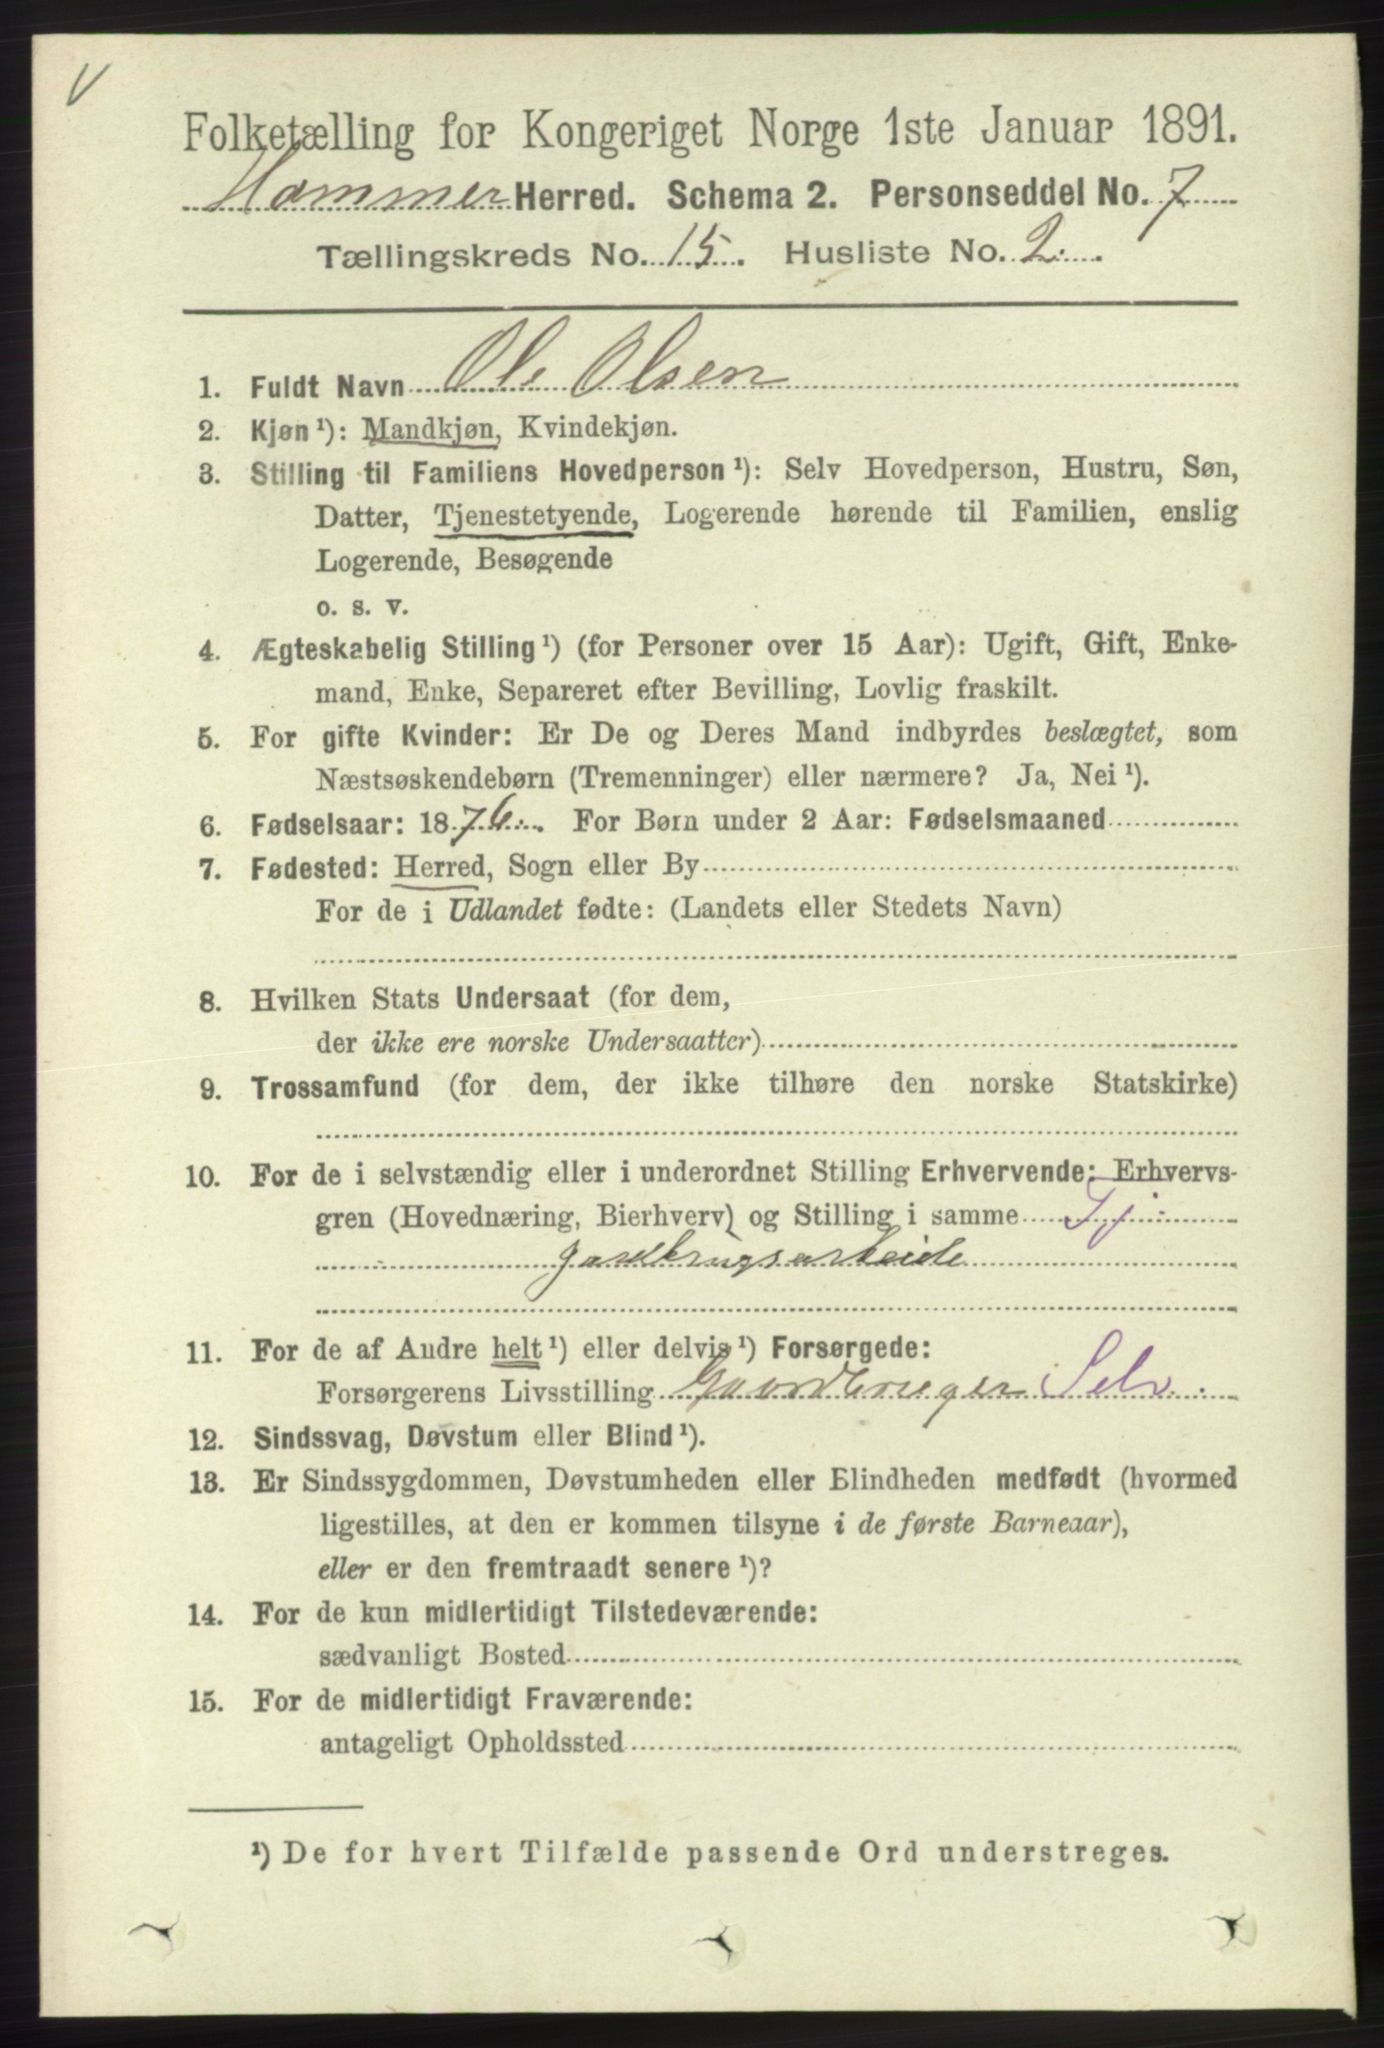 V
Folketælling for Kongeriget Norge 1ste Januar 1891.
Hammer Herred. Schema 2. Personseddel No. 7
Tællingskreds No. 15. Husliste No. 2.
1. Fuldt Navn Ole Olsen
2. Kjøn ¹): Mandkjøn, Kvindekjøn.
3. Stilling til Familiens Hovedperson ¹): Selv Hovedperson, Hustru, Søn,
Datter, Tjenestetyende, Logerende hørende til Familien, enslig
Logerende, Besøgende
o. s. v.
4. Ægteskabelig Stilling ¹) (for Personer over 15 Aar): Ugift, Gift, Enke-
mand, Enke, Separeret efter Bevilling, Lovlig fraskilt.
5. For gifte Kvinder: Er De og Deres Mand indbyrdes beslægtet, som
Næstsøskendebørn (Tremenninger) eller nærmere? Ja, Nei ¹).
6. Fødselsaar: 1876. For Børn under 2 Aar: Fødselsmaaned
7. Fødested: Herred, Sogn eller By
For de i Udlandet fødte: (Landets eller Stedets Navn)
8. Hvilken Stats Undersaat (for dem,
der ikke ere norske Undersaatter)
9. Trossamfund (for dem, der ikke tilhøre den norske Statskirke)
10. For de i selvstændig eller i underordnet Stilling Erhvervende: Erhvervs-
gren (Hovednæring, Bierhverv) og Stilling i samme Tj.
gardbrugsarbeide
11. For de af Andre helt ¹) eller delvis ¹) Forsørgede:
Forsørgerens Livsstilling Gaardbruger Selv.
12. Sindssvag, Døvstum eller Blind ¹).
13. Er Sindssygdommen, Døvstumheden eller Blindheden medfødt (hvormed
ligestilles, at den er kommen tilsyne i de første Barneaar),
eller er den fremtraadt senere ¹)?
14. For de kun midlertidigt Tilstedeværende:
sædvanligt Bosted
15. For de midlertidigt Fraværende:
antageligt Opholdssted
¹) De for hvert Tilfælde passende Ord understreges.